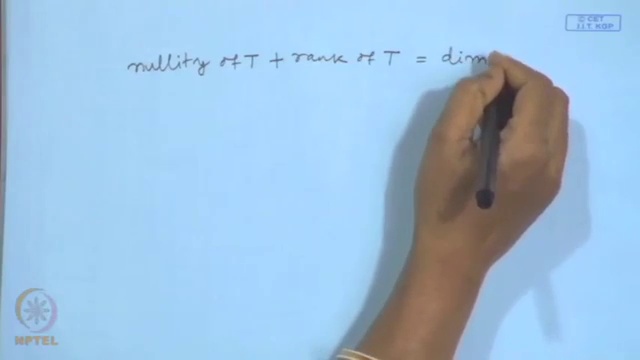 © CET
I.I.T. KGP
nullity of T + rank of T = dim
NPTEL